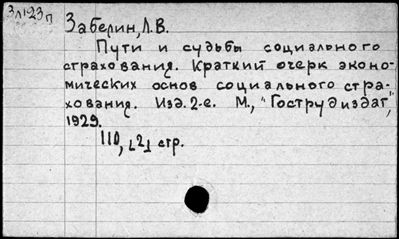 Забелин, Л.В.
Пути и судьбы социального
страхования. Краткий очерк эконо-
мических основ социального стра-
хования. Изд. 2-е. М., "Гострудиздат",
1929.
110, [2] стр.